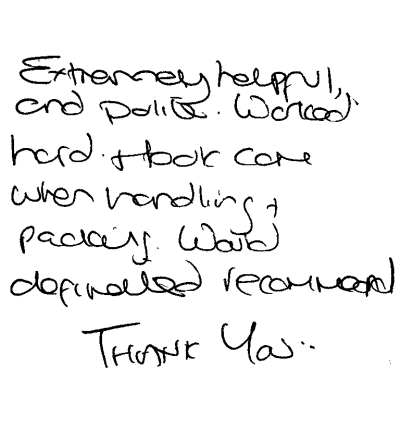 Extremely helpful,
and polite. Worked
hard. + took care
when handling +
packing. Would
definately recommend
THANK YOU..